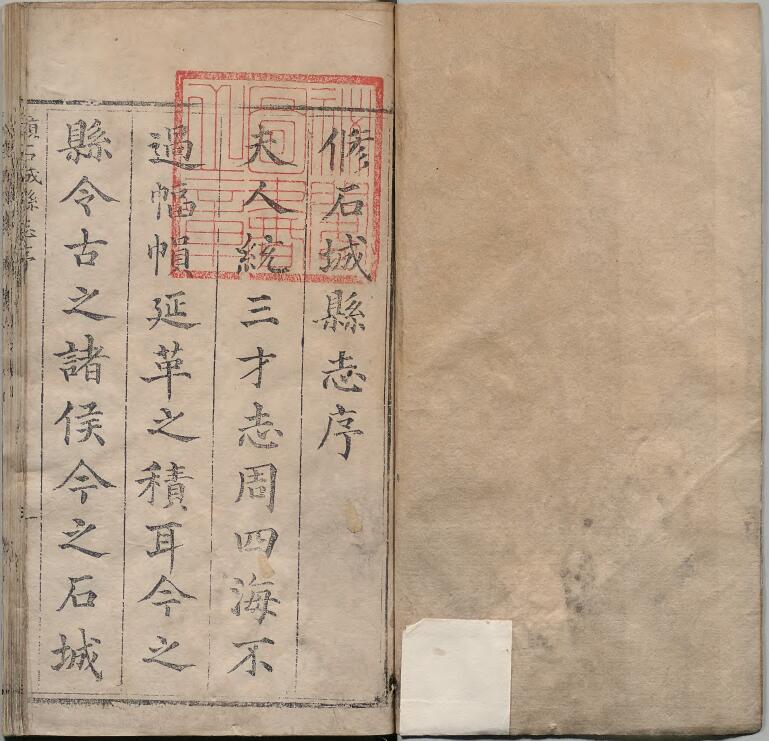 修石城縣志序
夫人統三才志周四海不
過幅幀延革之積耳今之
縣令古之諸侯今之石城
石城縣志序